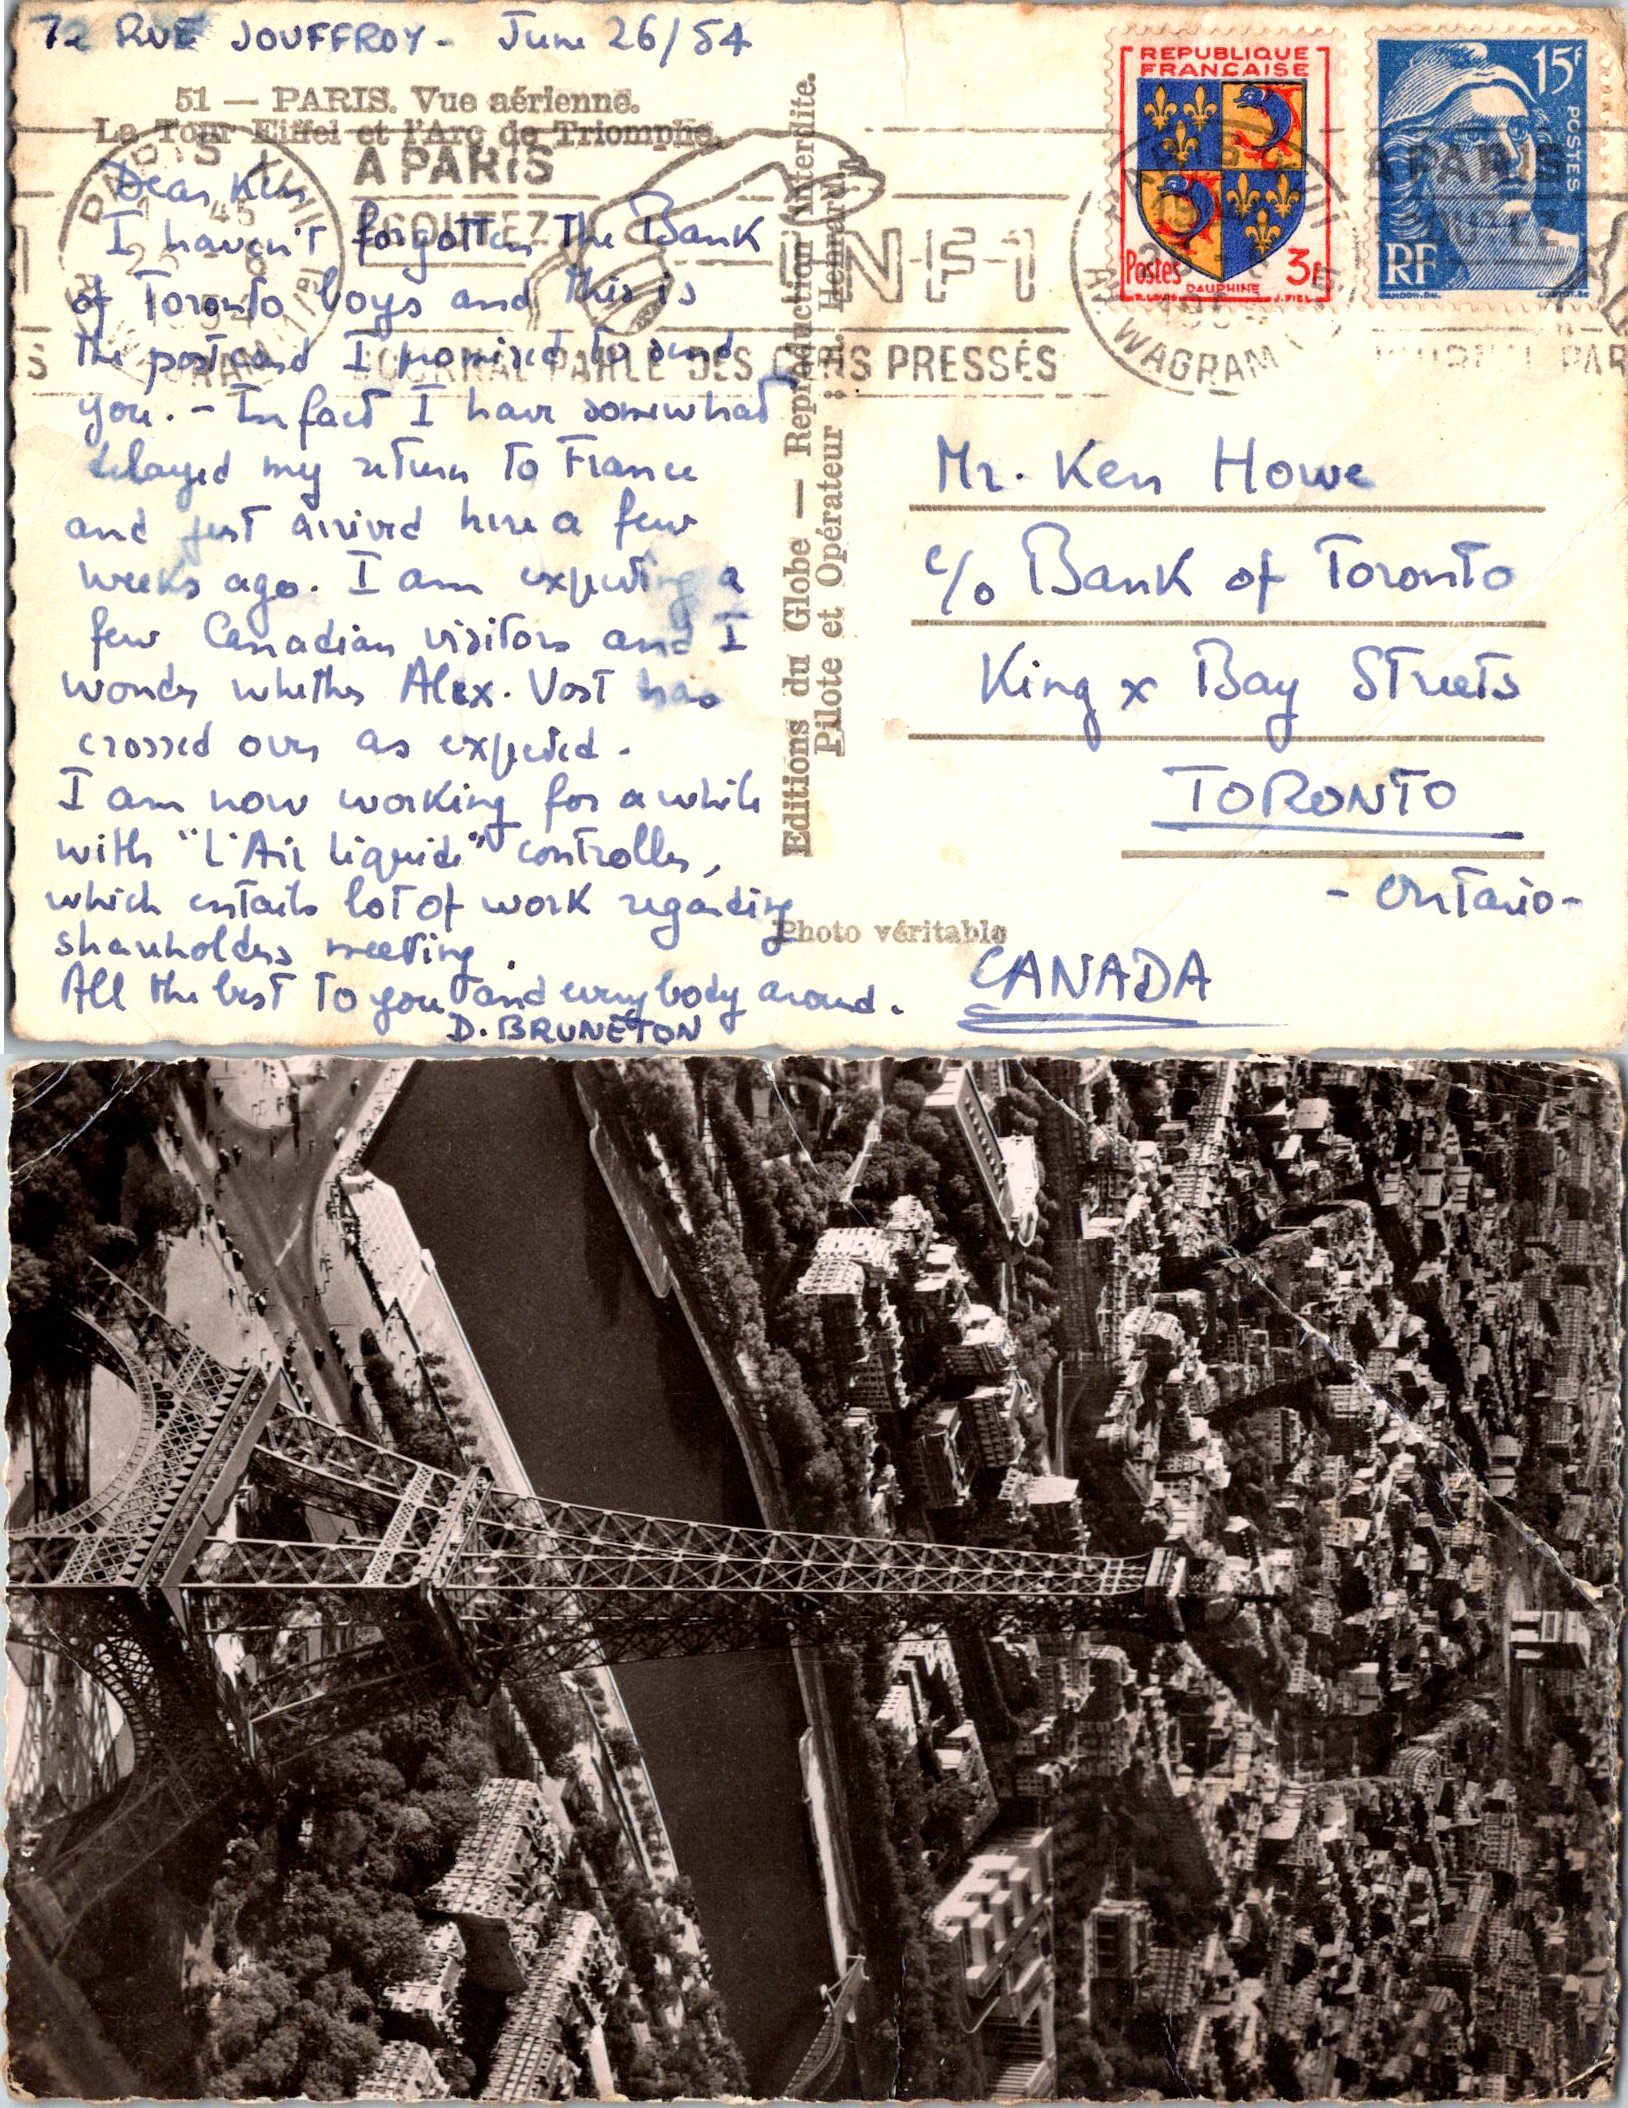 72 RUE JOUFFROY - June 26/54
51 — PARIS. Vue aérienne.
La Tour Eiffel et l'Arc de Triomphe.
Dear Ken
I haven't forgotten the Bank
of Toronto boys and this is
the postcard I promised to send
you. - In fact I have somewhat
delayed my return to France
and just arrived here a few
weeks ago. I am expecting a
few Canadian visitors and I
wonder whether Alex. Vost has
crossed over as expected.
I am now working for a while
with "L'Air Liquide" controller,
which entails lot of work regarding
shareholders meeting.
All the best to you and everybody around.
D. BRUNETON
Editions du Globe — Reproduction interdite.
Pilote et Opérateur : R. Henrard
Photo véritable
PARIS XVII
25 - 6
R. WAGRAM
A PARIS
ECOUTEZ
INF-1
JOURNAL PARLÉ DES GENS PRESSÉS
REPUBLIQUE
FRANÇAISE
Postes 3F
DAUPHINE
J. PIEL
15F
POSTES
RF
A PARIS
WAGRAM
Mr. Ken Howe
c/o Bank of Toronto
King x Bay Streets
TORONTO
- Ontario -
CANADA